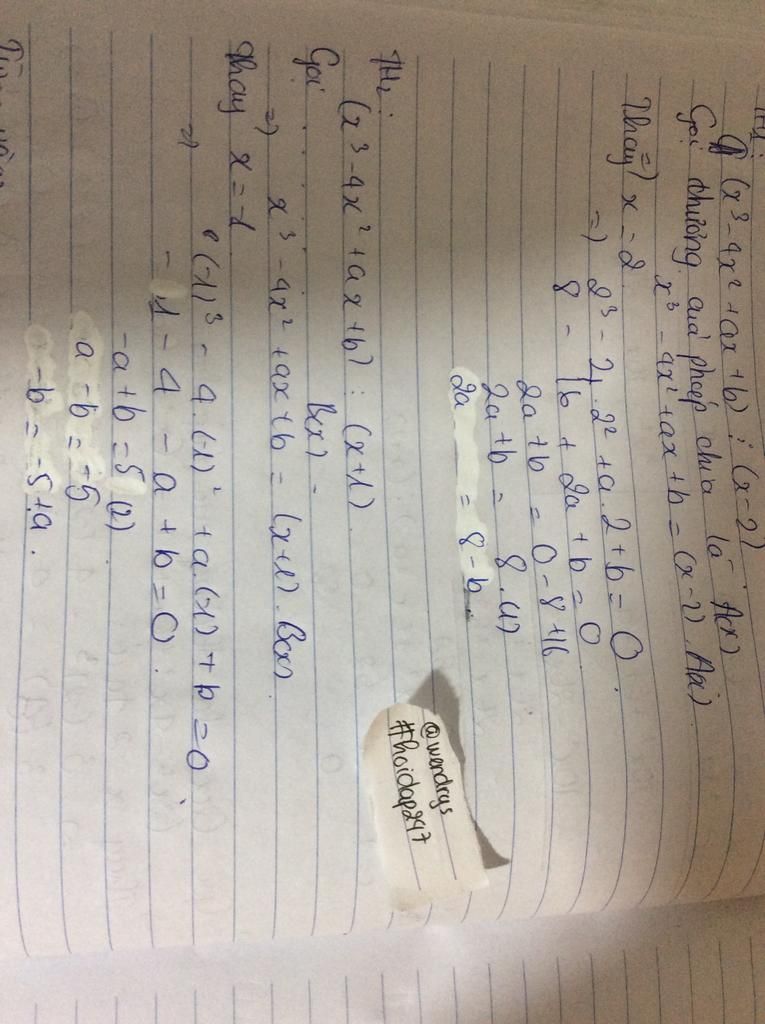 TH1:
(x³ - 4x² + ax + b) : (x - 2)
Gọi thương của phép chia là A(x)
=) x³ - 4x² + ax + b = (x - 2). A(x)
Thay x = 2
=) 2³ - 4.2² + a.2 + b = 0
8 - 16 + 2a + b = 0
2a + b = 0 - 8 + 16
2a + b = 8 (1)
2a = 8 - b
TH2:
(x³ - 4x² + ax + b) : (x + 1)
Gọi . . . . . . B(x)
=) x³ - 4x² + ax + b = (x + 1). B(x)
Thay x = -1
=) (-1)³ - 4.(-1)² + a.(-1) + b = 0
- 1 - 4 - a + b = 0.
-a + b = 5 (2)
a - b = -5
- b = -5 + a.
@wendrys
#hoidap247